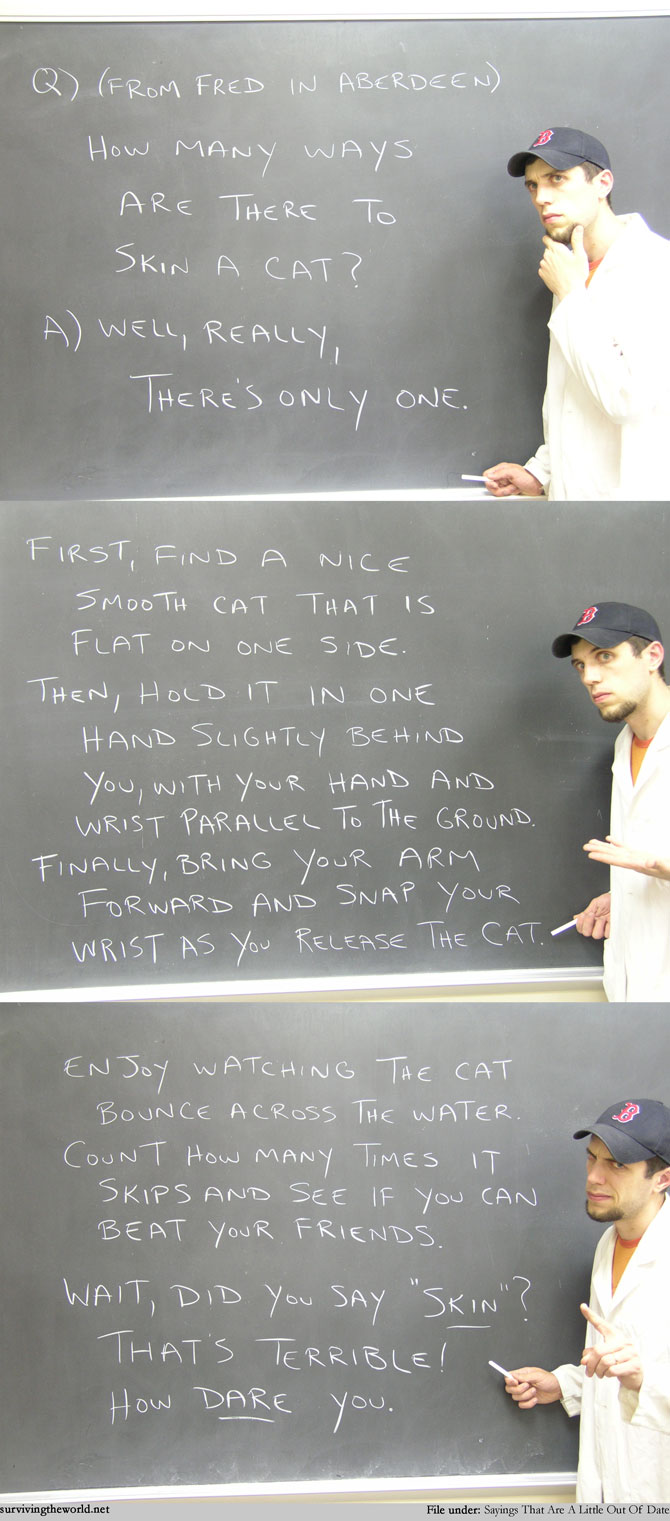 Q) (FROM FRED IN ABERDEEN)
HOW MANY WAYS
ARE THERE TO
SKIN A CAT?
A) WELL, REALLY,
THERE'S ONLY ONE.
FIRST, FIND A NICE
SMOOTH CAT THAT IS
FLAT ON ONE SIDE.
THEN, HOLD IT IN ONE
HAND SLIGHTLY BEHIND
YOU, WITH YOUR HAND AND
WRIST PARALLEL TO THE GROUND.
FINALLY, BRING YOUR ARM
FORWARD AND SNAP YOUR
WRIST AS YOU RELEASE THE CAT.
ENJOY WATCHING THE CAT
BOUNCE ACROSS THE WATER.
COUNT HOW MANY TIMES IT
SKIPS AND SEE IF YOU CAN
BEAT YOUR FRIENDS.
WAIT, DID YOU SAY "SKIN"?
THAT'S TERRIBLE!
HOW DARE YOU.
survivingtheworld.net File under: Sayings That Are A Little Out Of Date
B
B
B